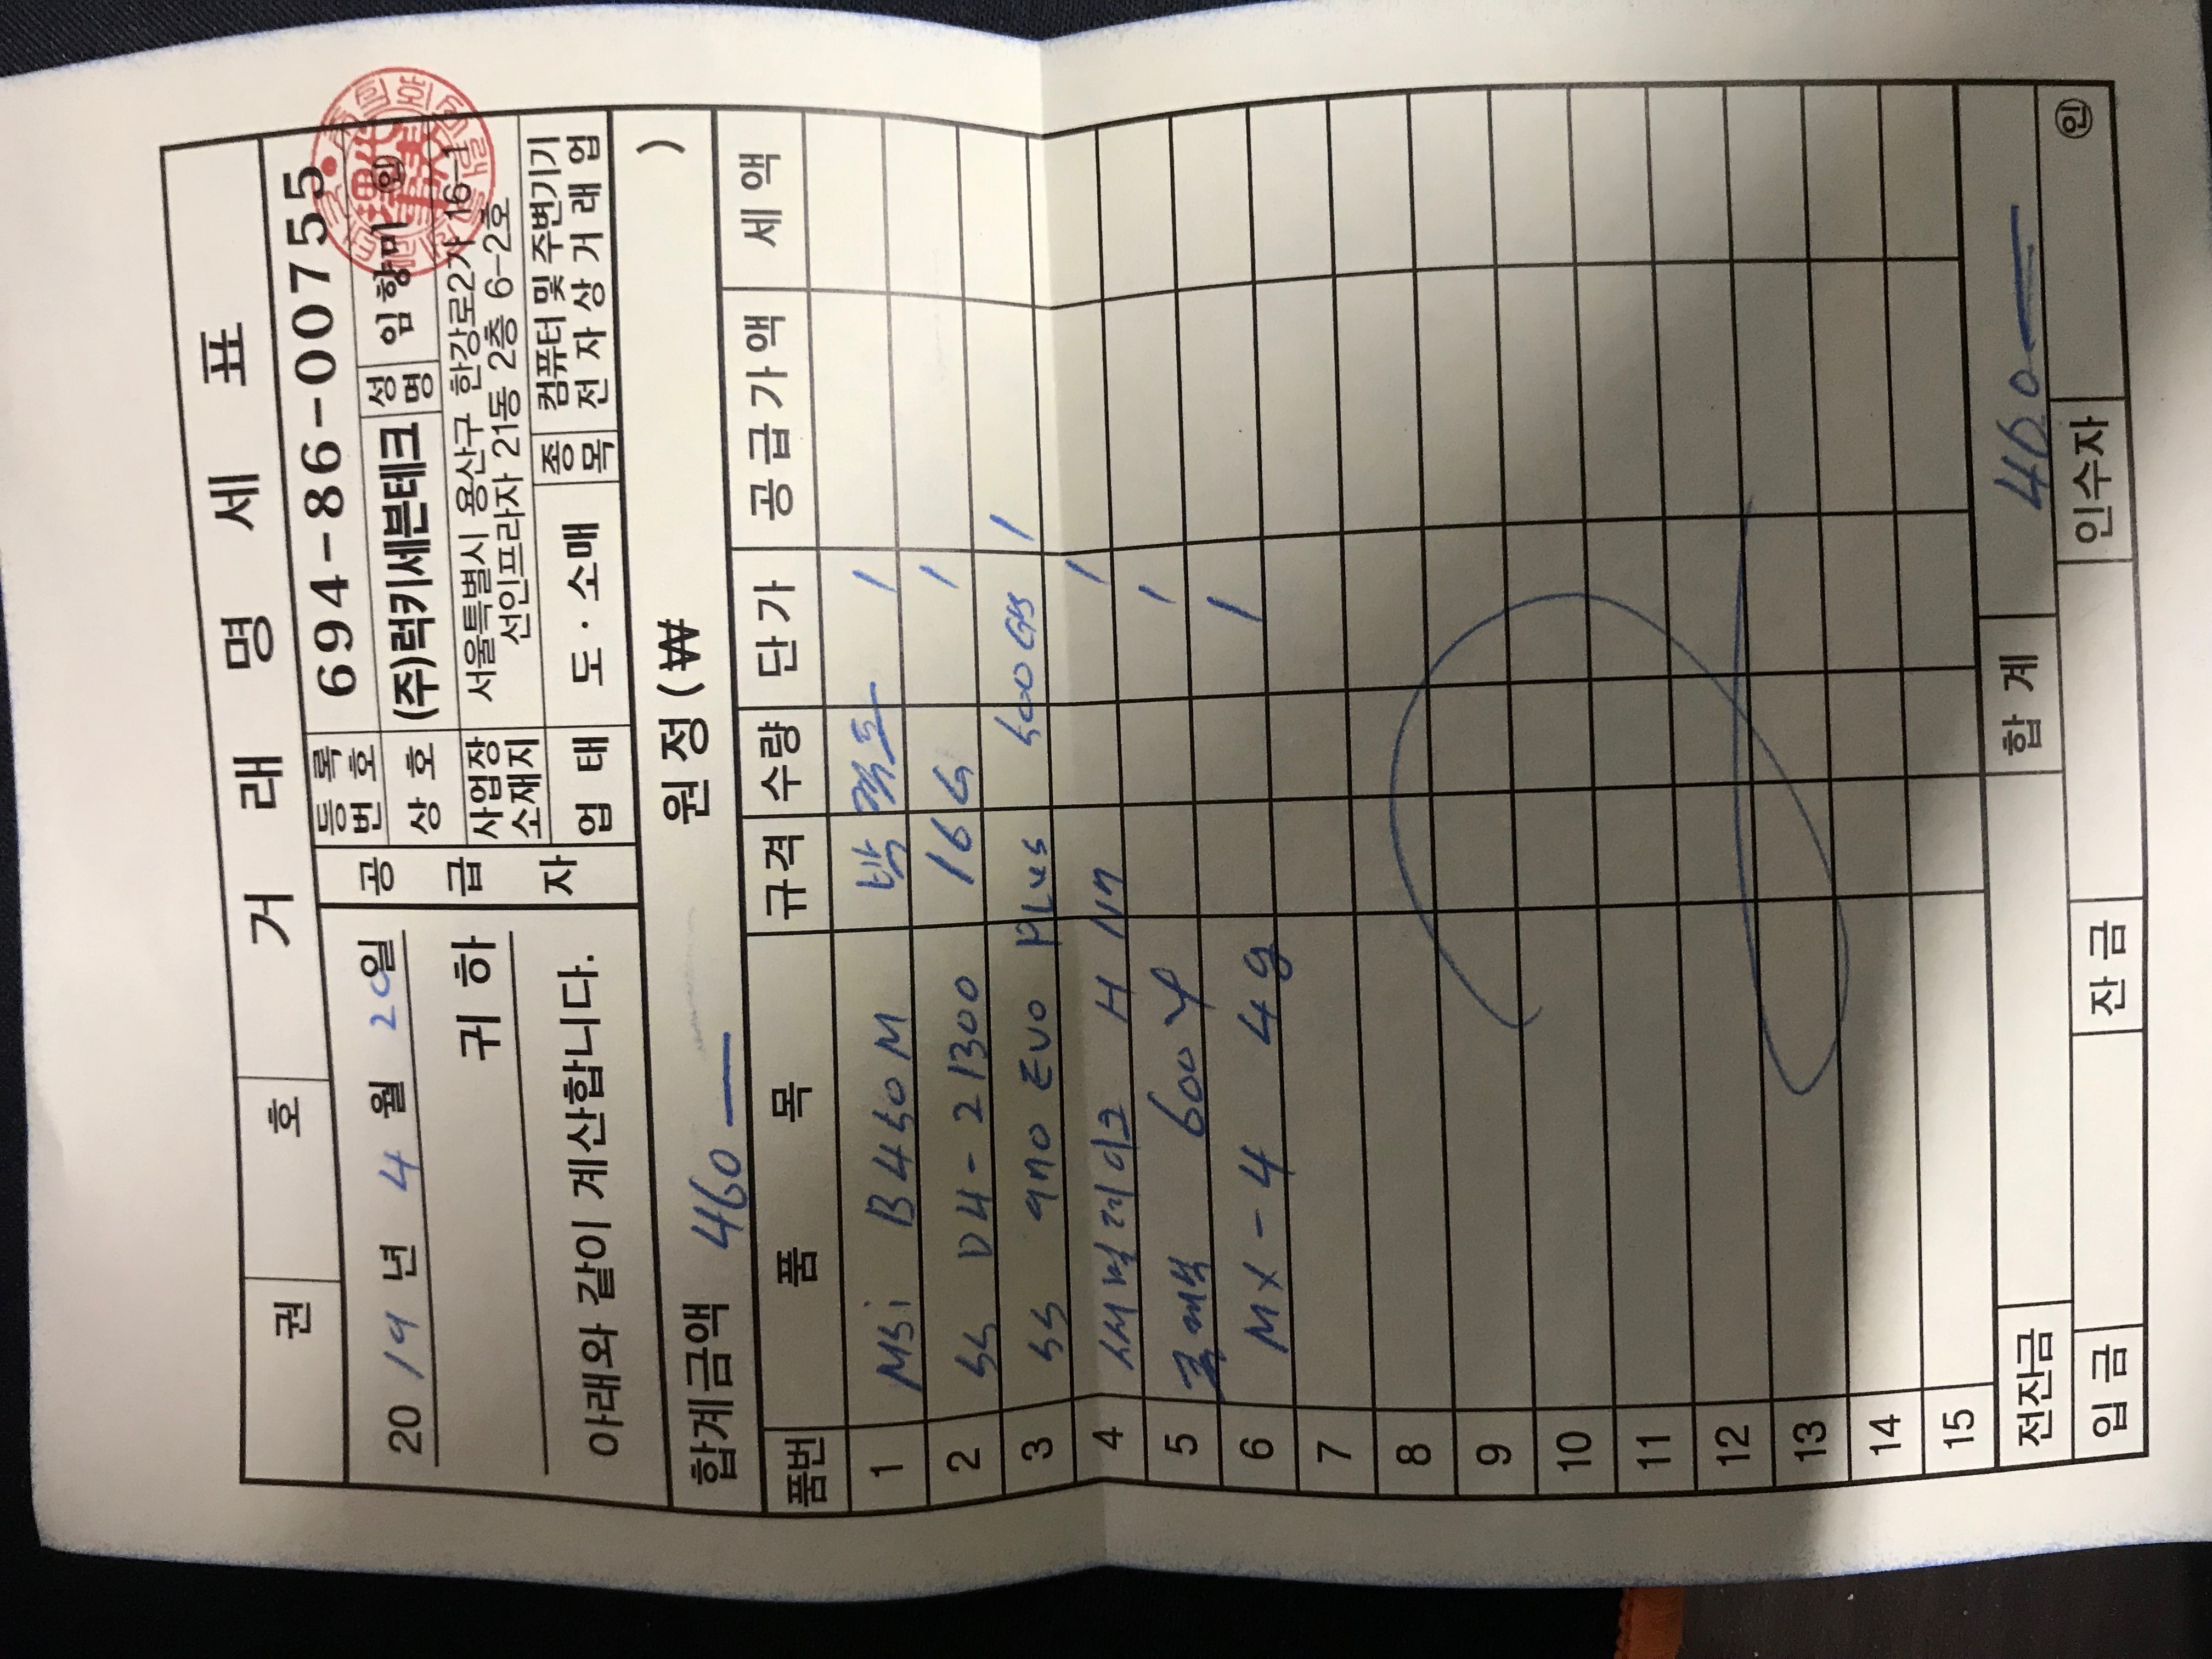 권 호 거 래 명 세 표
2019년 4월 20일
귀 하
아래와 같이 계산합니다.
공급자
등록번호 694-86-00755
상 호 (주)럭키세븐테크 성명 임향미 인
사업장소재지 서울특별시 용산구 한강로2가 16-1
선인프라자 21동 2층 6-2호
업 태 도·소매 종목 컴퓨터 및 주변기기
전 자 상 거 래 업
합계금액 460 — 원정(₩ )
품번 품 목 규격 수량 단가 공급가액 세액
1 MSi B450M 박격포 1
2 SS D4-21300 16G 1
3 SS 970 EVO PLus 500GB 1
4 써멀테이크 H 117 1
5 600W 1
6 MX-4 4g 1
7
8
9
10
11
12
13
14
15
전잔금 합 계 460 —
입 금 잔 금 인수자 인